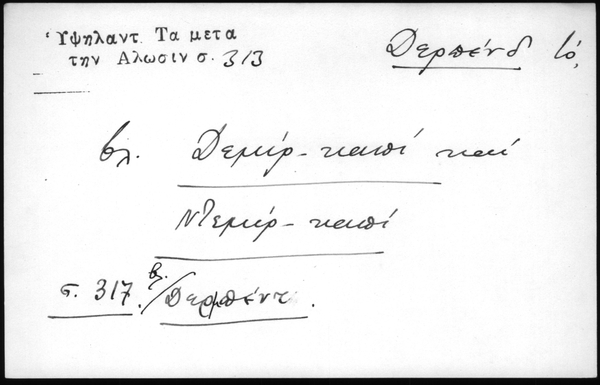 Ὑψηλαντ. Τα μετα
την Αλωσιν σ. 313
Δερπένδ τό,
βλ. Δεμίρ-καπί καί
Ντεμίρ-καπί
σ. 317. βλ. Δερμπέντ.